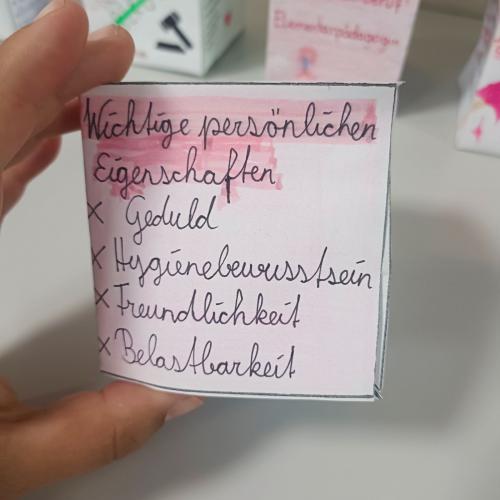 Elementarpädagogin
Wichtige persönlichen
Eigenschaften
x Geduld
x Hygienebewusstsein
x Freundlichkeit
x Belastbarkeit